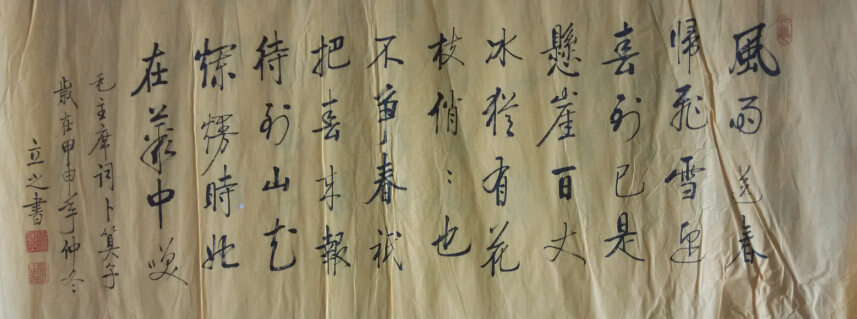 風雨送春
歸飛雪迎
春到已是
懸崖百丈
冰猶有花
枝俏〻也
不爭春祇
把春来報
待到山花
爛熳時她
在叢中咲
毛主席詞卜算子
歲在甲申年仲冬
立之書